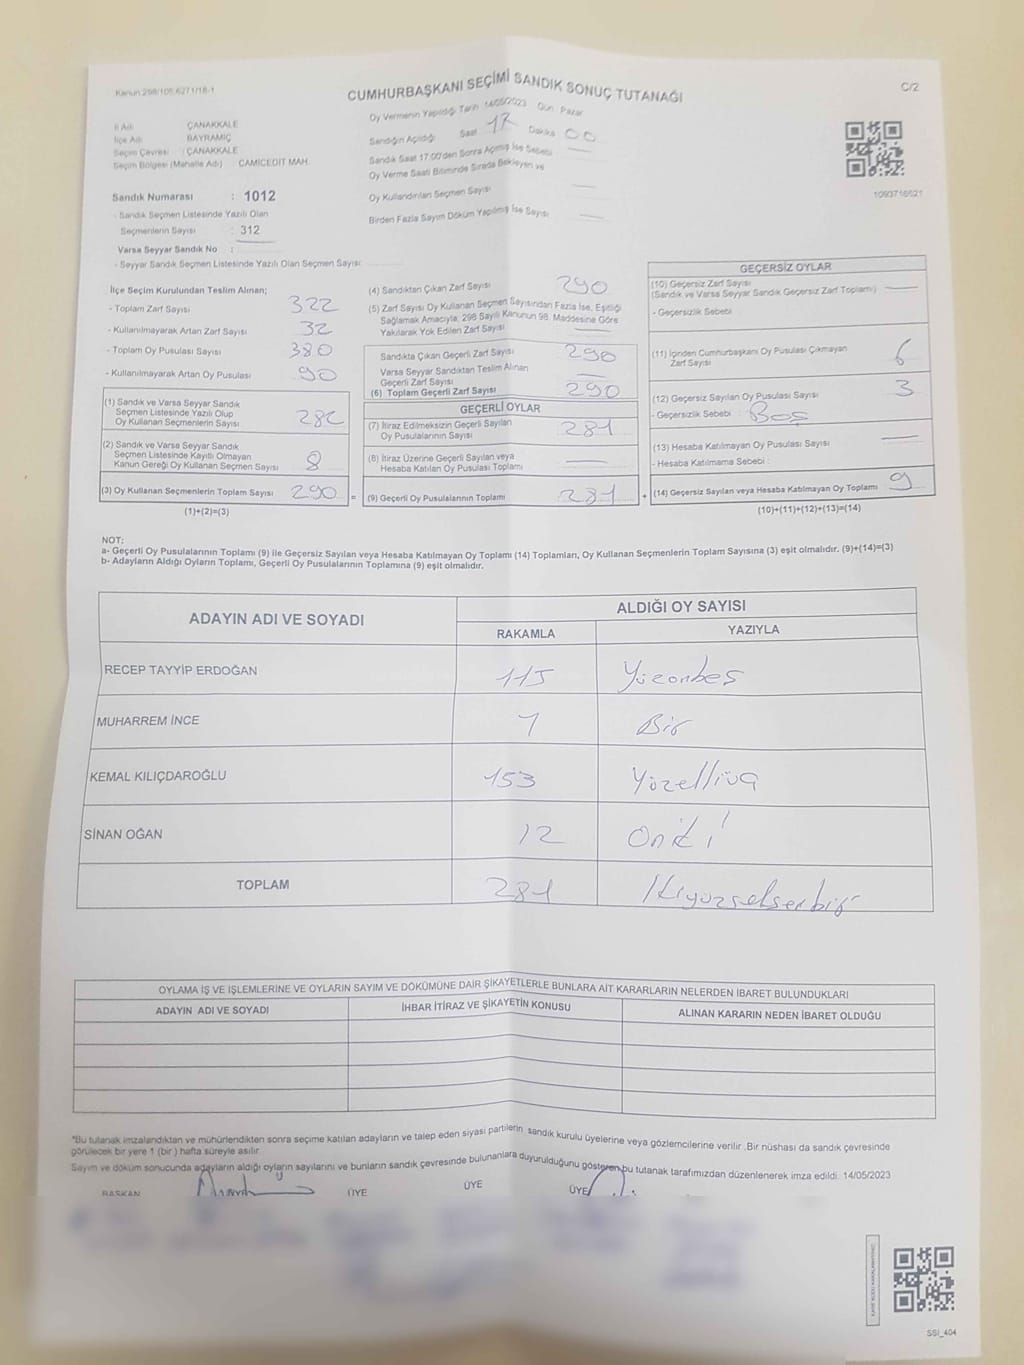 Kanun:298/105,6271/18-1
CUMHURBAŞKANI SEÇİMİ SANDIK SONUÇ TUTANAĞI
C/2
İl Adı : ÇANAKKALE
İlçe Adı : BAYRAMİÇ
Seçim Çevresi : ÇANAKKALE
Seçim Bölgesi (Mahalle Adı) : CAMİCEDİT MAH.
Sandık Numarası : 1012
- Sandık Seçmen Listesinde Yazılı Olan
Seçmenlerin Sayısı : 312
Varsa Seyyar Sandık No :
- Seyyar Sandık Seçmen Listesinde Yazılı Olan Seçmen Sayısı:
Oy Vermenin Yapıldığı Tarih 14/05/2023 Gün: Pazar
Sandığın Açıldığı Saat 17 Dakika 00
Sandık Saat 17:00'den Sonra Açılmış İse Sebebi
Oy Verme Saati Bitiminde Sırada Bekleyen ve
Oy Kullandırılan Seçmen Sayısı
Birden Fazla Sayım Döküm Yapılmış İse Sayısı
1093716621
İlçe Seçim Kurulundan Teslim Alınan;
- Toplam Zarf Sayısı 322
- Kullanılmayarak Artan Zarf Sayısı 32
- Toplam Oy Pusulası Sayısı 380
- Kullanılmayarak Artan Oy Pusulası 90
(1) Sandık ve Varsa Seyyar Sandık
Seçmen Listesinde Yazılı Olup
Oy Kullanan Seçmen Sayısı
(2) Sandık ve Varsa Seyyar Sandık
Seçmen Listesinde Kayıtlı Olmayan
Kanun Gereği Oy Kullanan Seçmen Sayısı 8
(3) Oy Kullanan Seçmenlerin Toplam Sayısı 290 =
(1)+(2)=(3)
(4) Sandıktan Çıkan Zarf Sayısı 290
(5) Zarf Sayısı Oy Kullanan Seçmen Sayısından Fazla İse, Eşitliği
Sağlamak Amacıyla; 298 Sayılı Kanunun 98. Maddesine Göre
Yakılarak Yok Edilen Zarf Sayısı
Sandıkta Çıkan Geçerli Zarf Sayısı 290
Varsa Seyyar Sandıktan Teslim Alınan
Geçerli Zarf Sayısı
(6) Toplam Geçerli Zarf Sayısı 290
GEÇERLİ OYLAR
(7) İtiraz Edilmeksizin Geçerli Sayılan
Oy Pusulalarının Sayısı 281
(8) İtiraz Üzerine Geçerli Sayılan veya
Hesaba Katılan Oy Pusulası Toplamı
(9) Geçerli Oy Pusulalarının Toplamı 281 +
GEÇERSİZ OYLAR
(10) Geçersiz Zarf Sayısı
(Sandık ve Varsa Seyyar Sandık Geçersiz Zarf Toplamı)
- Geçersizlik Sebebi
(11) İçinden Cumhurbaşkanı Oy Pusulası Çıkmayan
Zarf Sayısı 6
(12) Geçersiz Sayılan Oy Pusulası Sayısı 3
- Geçersizlik Sebebi : Boş
(13) Hesaba Katılmayan Oy Pusulası Sayısı
- Hesaba Katılmama Sebebi :
(14) Geçersiz Sayılan veya Hesaba Katılmayan Oy Toplamı 9
(10)+(11)+(12)+(13)=(14)
NOT:
a- Geçerli Oy Pusulalarının Toplamı (9) ile Geçersiz Sayılan veya Hesaba Katılmayan Oy Toplamı (14) Toplamları, Oy Kullanan Seçmenlerin Toplam Sayısına (3) eşit olmalıdır. (9)+(14)=(3)
b- Adayların Aldığı Oyların Toplamı, Geçerli Oy Pusulalarının Toplamına (9) eşit olmalıdır.
ADAYIN ADI VE SOYADI
ALDIĞI OY SAYISI
RAKAMLA YAZIYLA
RECEP TAYYİP ERDOĞAN 115 Yüzonbeş
MUHARREM İNCE 1 Bir
KEMAL KILIÇDAROĞLU 153 Yüzelliüç
SİNAN OĞAN 12 Oniki
TOPLAM 281 İkiyüzseksenbir
OYLAMA İŞ VE İŞLEMLERİNE VE OYLARIN SAYIM VE DÖKÜMÜNE DAİR ŞİKAYETLERLE BUNLARA AİT KARARLARIN NELERDEN İBARET BULUNDUKLARI
ADAYIN ADI VE SOYADI İHBAR İTİRAZ VE ŞİKAYETİN KONUSU ALINAN KARARIN NEDEN İBARET OLDUĞU
*Bu tutanak imzalandıktan ve mühürlendikten sonra seçime katılan adayların ve talep eden siyasi partilerin, sandık kurulu üyelerine veya gözlemcilerine verilir. Bir nüshası da sandık çevresinde
görülecek bir yere 1 (bir) hafta süreyle asılır.
Sayım ve döküm sonucunda adayların aldığı oyların sayılarını ve bunların sandık çevresinde bulunanlara duyurulduğunu gösteren bu tutanak tarafımızdan düzenlenerek imza edildi. 14/05/2023
BAŞKAN ÜYE ÜYE ÜYE
SSI_404